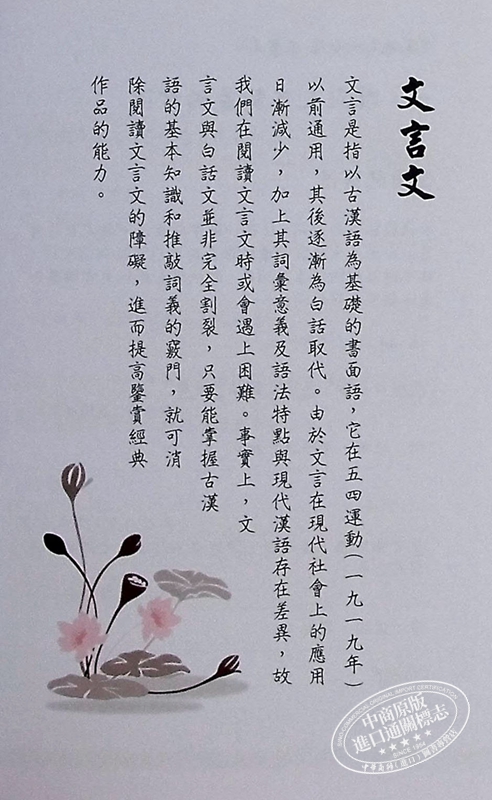 文言文
文言是指以古漢語為基礎的書面語，它在五四運動（一九一九年）
以前通用，其後逐漸為白話取代。由於文言在現代社會上的應用
日漸減少，加上其詞彙意義及語法特點與現代漢語存在差異，故
我們在閱讀文言文時或會遇上困難。事實上，文
言文與白話文並非完全割裂，只要能掌握古漢
語的基本知識和推敲詞義的竅門，就可消
除閱讀文言文的障礙，進而提高鑒賞經典
作品的能力。
中商原版
進口通關標志
SINCE 1950